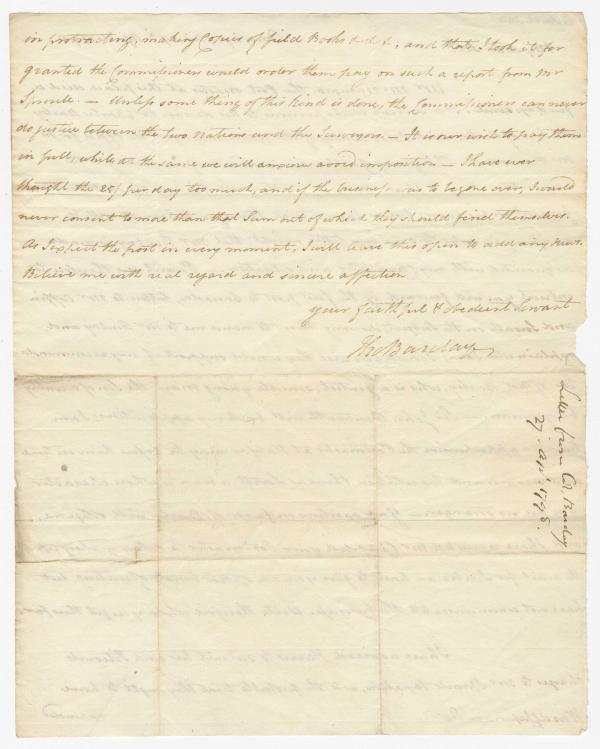 in protracting, making Copies of field Books &c &c, and that I took it for
granted the Commissioners would order them pay on such a report from Mr
Sproule. — Unless some thing of this kind is done, the Commissioners can never
do justice between the two Nations and the Surveyors. — It is our wish to pay them
in full, while at the same we will anxious avoid imposition — I have ever
thought the 25/ per day too much, and if the business was to begone over, I would
never consent to more than that Sum out of which they should find themselves.
As I expect the post in every moment, I will leave this open to add any news.
Believe me with real regard and sincere affection
your faithful & obedient Servant
Tho Barclay
Letter from Col. Barclay
27. Apl 1798.